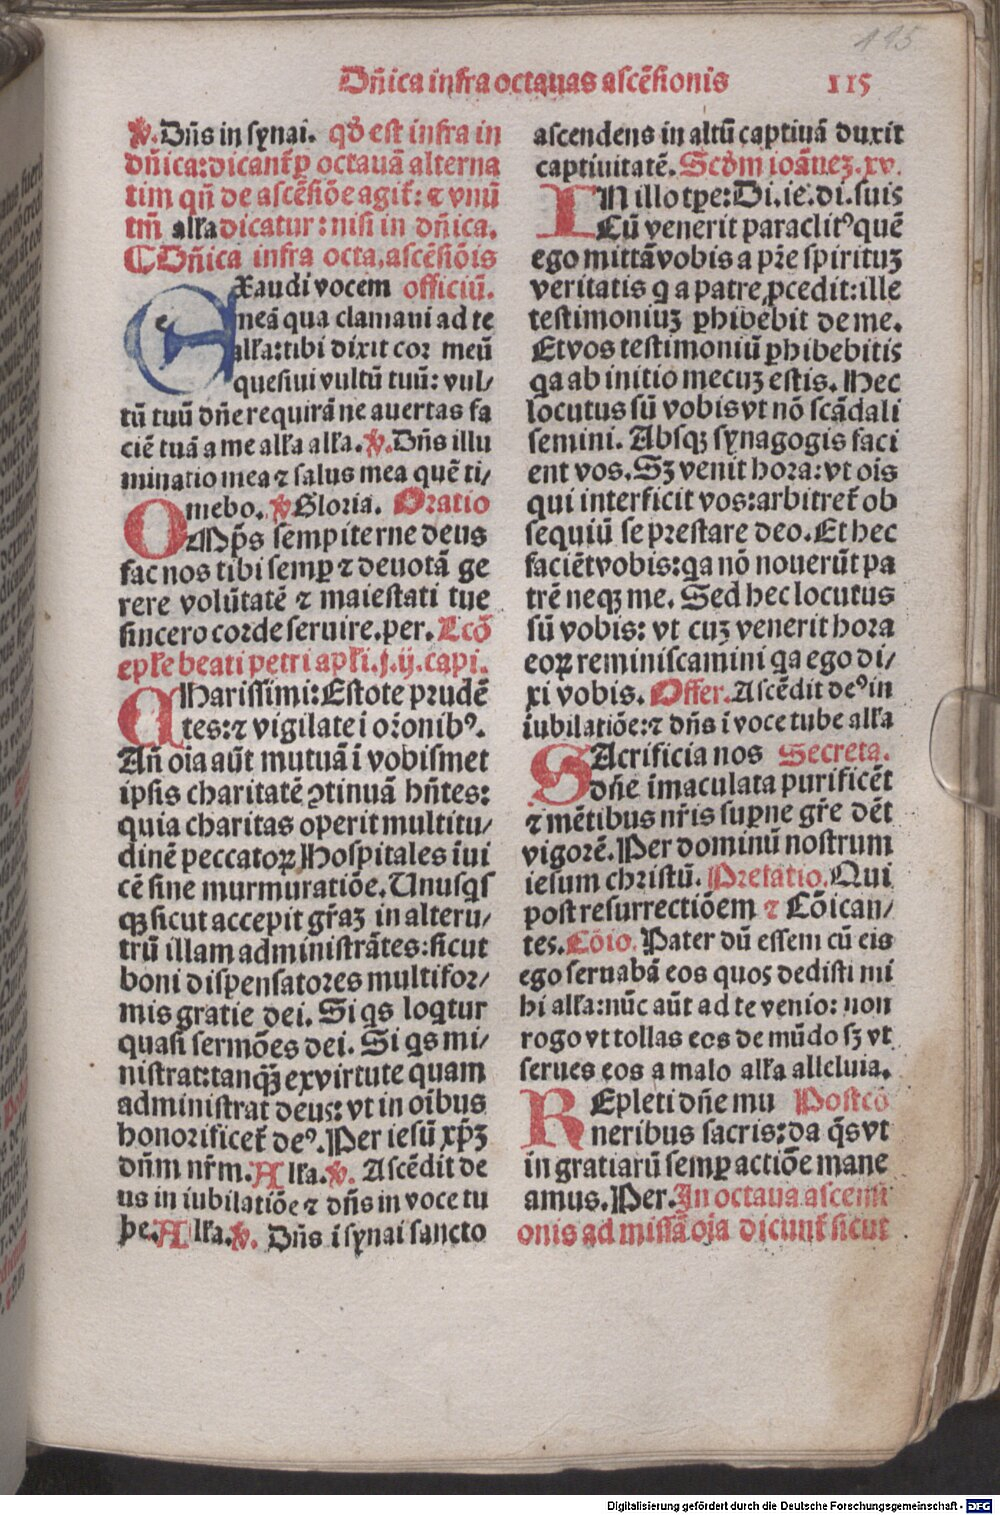 115
Dn̄ica infra octauas ascēsionis 115
℣. Dn̄s in synai. qd̓ est infra in
dn̄ica: dicant᷑ ꝑ octauā alterna
tim qn̄ de ascēsiōe agit᷑: ⁊ vnū
tm̄ alľa dicatur: nisi in dn̄ica.
¶ Dn̄ica infra octa. ascēsiōis
EXaudi vocem officiū.
meā qua clamaui ad te
alľa: tibi dixit cor meū
quesiui vultū tuū: vul/
tū tuū dn̄e requirā ne auertas fa
ciē tuā a me alľa alľa. ℣. Dn̄s illu
minatio mea ⁊ salus mea quē ti/
mebo. ℣ Gloria. Oratio
OMp̄s sempiterne deus
fac nos tibi semꝑ ⁊ deuotā ge
rere volūtatē ⁊ maiestati tue
sincero corde seruire. per. Lcō
epľe beati petri apľi. j. ij. capi.
CHarissimi: Estote prudē
tes: ⁊ vigilate i or̄onibꝰ.
An̄ oīa aūt mutuā ī vobismet
ipsis charitatē ꝯtinuā hn̄tes:
quia charitas operit multitu/
dinē peccatoꝝ Hospitales īui
cē sine murmuratiōe. Unusqs
qꝫ sicut accepit gr̄aꝫ in alteru/
trū illam administrātes: sicut
boni dispensatores multifor/
mis gratie dei. Si qs loqtur
quasi sermōes dei. Si qs mi/
nistrat: tanqꝫ̄ ex virtute quam
administrat deus: vt in oībus
honorificet᷑ deꝰ. Per iesū xp̄ꝫ
dn̄m nr̄m. Alľa. ℣. Ascēdit de
us in iubilatiōe ⁊ dn̄s in voce tu
be. Alľa. ℣. Dn̄s i synai sancto
ascendens in altū captiuā duxit
captiuitatē. Scd̓m ioānneꝫ. xv.
IN illo tꝑe: Di. ie. di. suis
Cū venerit paraclitꝰ quē
ego mittā vobis a pr̄e spirituꝫ
veritatis q a patre ꝓcedit: ille
testimoniuꝫ ꝑhibebit de me.
Et vos testimoniū ꝑhibebitis
qa ab initio mecuꝫ estis. Hec
locutus sū vobis vt nō scādali
semini. Absqꝫ synagogis faci
ent vos. Sꝫ venit hora: vt oīs
qui interficit vos: arbitret᷑ ob
sequiū se prestare deo. Et hec
faciēt vobis: qa nō nouerūt pa
trē neqꝫ me. Sed hec locutus
sū vobis: vt cuꝫ venerit hora
eoꝝ reminiscamini qa ego di/
xi vobis. Offer. Ascēdit deꝰ in
iubilatiōe: ⁊ dn̄s ī voce tube alľa
SAcrificia nos Secreta.
dn̄e īmaculata purificēt
⁊ mētibus nr̄is suꝑne gr̄e dēt
vigorē. Per dominū nostrum
iesum christū. Prefatio. Qui
post resurrectiōem ⁊ Cōican/
tes. Cōio. Pater dū essem cū eis
ego seruabā eos quos dedisti mi
hi alľa: nūc aūt ad te venio: non
rogo vt tollas eos de mūdo sꝫ vt
serues eos a malo alľa alleluia.
REpleti dn̄e mu Postcō
neribus sacris: da q̄s vt
in gratiarū semꝑ actiōe mane
amus. Per. In octaua ascensi
onis ad missā oīa dicunt᷑ sicut
Digitalisierung gefördert durch die Deutsche Forschungsgemeinschaft - DFG